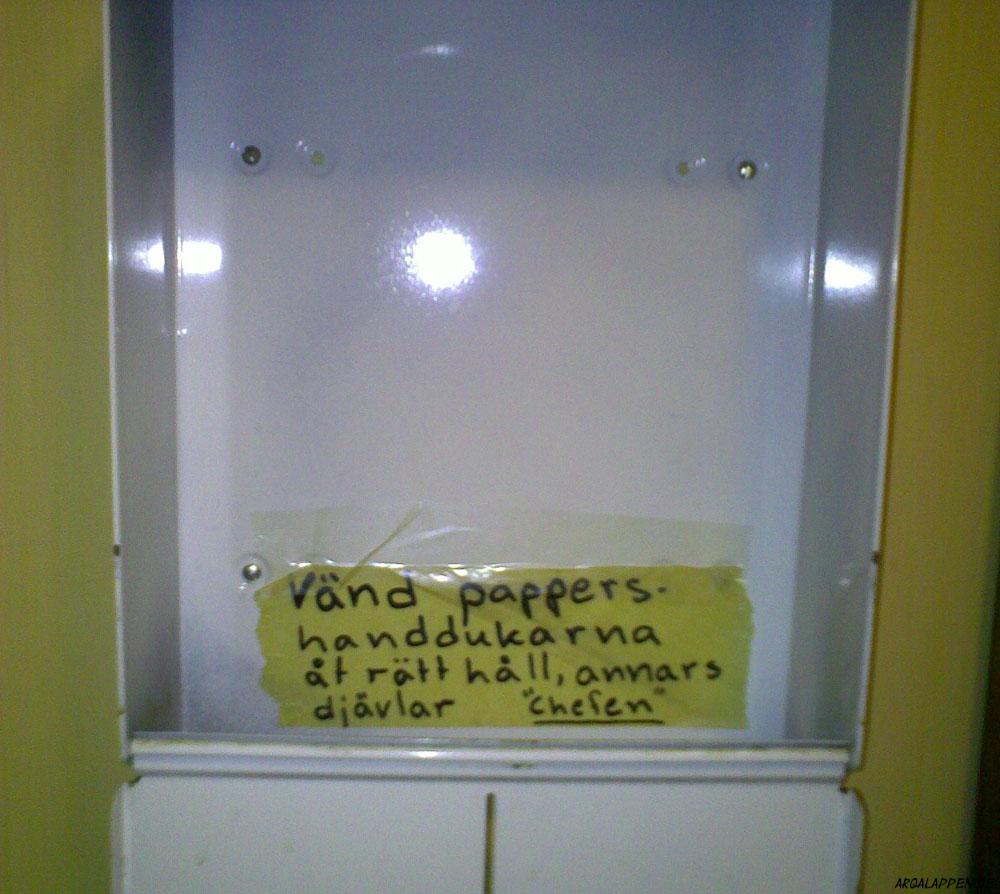 Vänd pappers-
handdukarna
åt rätt håll, annars
djävlar "Chefen"